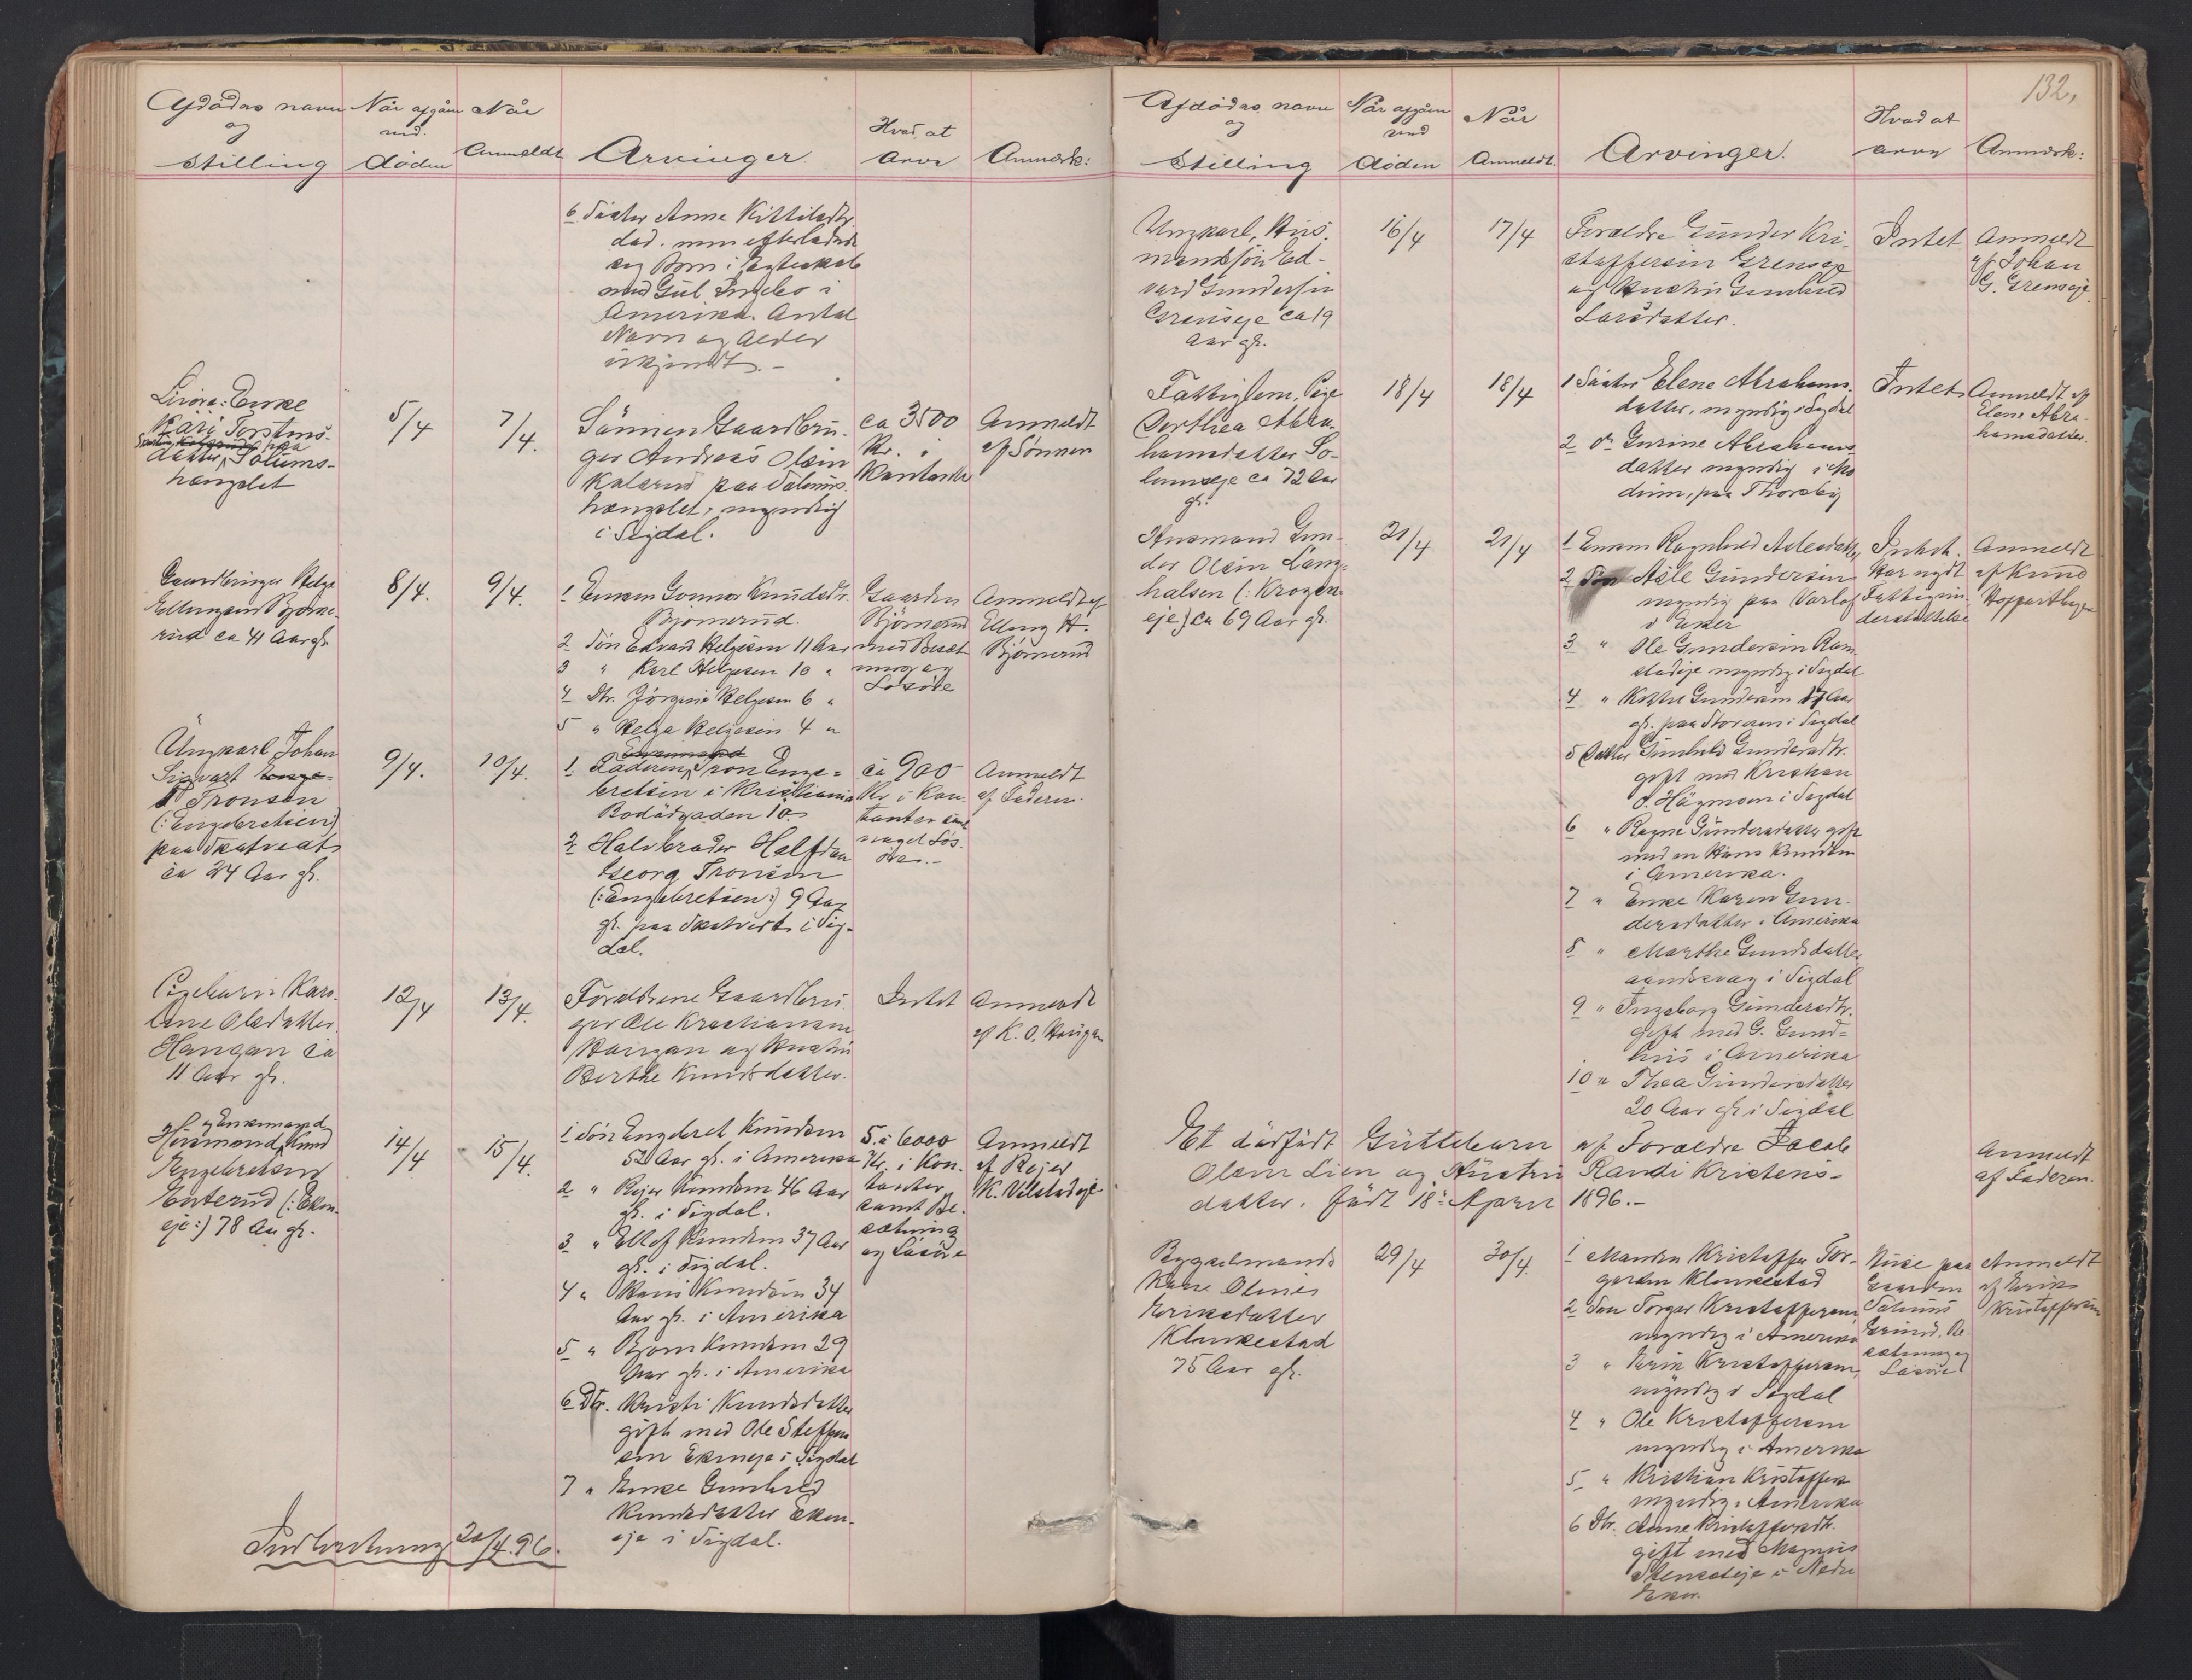 Afdödes navn
og
Stilling
Når afgåen
ved
döden
Når
Anmeldt
Arvinger.
Hvad at
arve
Anmærk:
6 Söster Anne Kittilsdtr
död. men efterladende
sig Børn i Egteskab
med Gul i
Amerika. Antal
Navn og Alder
ukjendt. -
Enke
Kari Torstens-
datter, Solums-
hængslet
5/4
7/4.
Sønnen Gaardbru-
ger Andreas Olsen
Kalsrud paa Solums-
hængslet, myndig
i Sigdal.
ca 3500
Kr. i
Kontanter
Anmeldt
af Sønnen
Gaardbruger Helge
Ellingsen Bjørne-
rud ca 41 Aar gl.
8/4.
9/4.
1 Enken Gonner Knudsdtr.
Bjørnerud.
2 Søn Edvard Helgesen 11 Aar
3 " Karl Helgesen 10 "
4 Dtr. Jörgine Helgesen 6 "
5 " Helga Helgesen 4 "
Gaarden
Bjørnerud
med Besæt
ning og
Løsöre
Anmeldt af
Elling H.
Bjørnerud
Ungkarl Johan
Sigvart Enge-
Tronsen
(: Engebretsen :)
paa Skatvedt
ca 24 Aar gl.
9/4.
10/4.
Enkemand
1. Faderen, Tron Enge-
bretsen i Kristiania
Bodödgaden 10.
2 Halvbroder Halfdan
Georg Tronsen
(: Engebretsen :) 9 Aar
gl. paa Skatvedt i Sig-
dal.
ca 900
Kr i Kon-
tanter samt
noget Løs-
öre. -
Anmeldt
af Faderen.
Pigebarn Karo-
line Olsdatter
Haugan ca
11 Aar gl.
12/4
13/4.
Forældrene Gaardbru-
ger Ole Kristiansen
Haugan og Hustru
Berthe Knudsdatter.
Intet
Anmeldt
af K. O. Haugan
og Enkemand
Husmand, Knud
Engebretsen
Enterud (: Eken-
eje :) 78 Aar gl.
14/4
15/4.
1 Søn Engebret Knudsen
52 Aar gl. i Amerika
2 " Reier Knudsen 46 Aar
gl. i Sigdal.
3 " Ellef Knudsen 37 Aar
gl. i Sigdal.
4 " Hans Knudsen 34
Aar gl. i Amerika
5 " Bjørn Knudsen 29
Aar gl. i Amerika
6 Dtr. Kristi Knudsdatter
gift med Ole Steffen
sen Ekeneje i Sigdal
7 " Enke Gunhild
Knudsdatter Eken-
eje i Sigdal.
5 à 6000
Kr. i Kon-
tanter
samt Be-
sætning
og Løsöre
Anmeldt
af Reier
K. Vilstadeje
Indberetning 20/4.96.
132,
Afdödes navn
og
Stilling
Når afgåen
ved
döden
Når
Anmeldt
Arvinger.
Hvad at
arve
Anmærk:
Ungkarl, Hus-
mandsøn Ed-
vard Gundersen
Grenseje ca 19
Aar gl.
16/4
17/4
Forældre Gunder Kri-
stoffersen Grenseje
og Hustru Gunhild
Larsdatter.
Intet
Anmeldt
af Johan
G. Grenseje
Fattiglem, Pige
Dorthea Abra-
hamsdatter So-
lumseje ca 72 Aar
gl.
18/4
18/4
1 Søster Elene Abrahams-
datter, myndig i Sigdal
2 do Gurine Abrahams-
datter myndig i Mo
dum, paa Thoreby
Intet
Anmeldt af
Elene Abra-
hamsdatter.
Husmand Gun-
der Olsen Lang-
halsen (: Krogen-
eje) ca 69 Aar gl.
21/4
21/4
1 Enken Ragnhild Aslesdatter
2 Søn Asle Gundersen
myndig paa Varlo
i Eker
3 " Ole Gundersen Ram
stadeje myndig i Sigdal
4 " Kittil Gundersen 17 Aar
gl. paa Storaen i Sigdal
5 Datter Gunhild Gundersdtr.
gift med Kristian
O. Högmoen i Sigdal
6 " Ragne Gundersdatter gift
med en Hans Knudsen
i Amerika.
7 " Enke Karen Gun-
dersdatter i Amerika
8 " Marthe Gundsdatter
aandssvag i Sigdal
9 " Ingeborg Gundersdtr.
gift med G. Gund-
hus i Amerika
10 " Thea Gundersdatter
20 Aar gl. i Sigdal
Intet.
Har nydt
Fattigun-
derstøttelse
Anmeldt
af Knud
Et dödfödt Guttebarn af Forældre Jacob
Olsen Lien og Hustru Randi Kristens-
datter. Födt 18: April 1896. -
Anmeldt
af Faderen.
Bygselmands
Kone Oline
Eriksdatter
Klunkestad
75 Aar gl.
29/4
30/4
1 Manden Kristoffer Tor-
gersen Klunkestad
2 Søn Torger Kristoffersen,
myndig i Amerika
3 " Erik Kristoffersen,
myndig i Sigdal
4 " Ole Kristoffersen
myndig i Amerika
5 " Kristian Kristoffers
myndig i Amerika
6 Dtr. Anne Kristoffersdtr.
gift med Magnus
Stensteje i Nedre
Eker.
Huse paa
Gaarden
Solums
Grund, Be-
sætning og
Løsöre
Anmeldt
af Erik
Kristoffersen